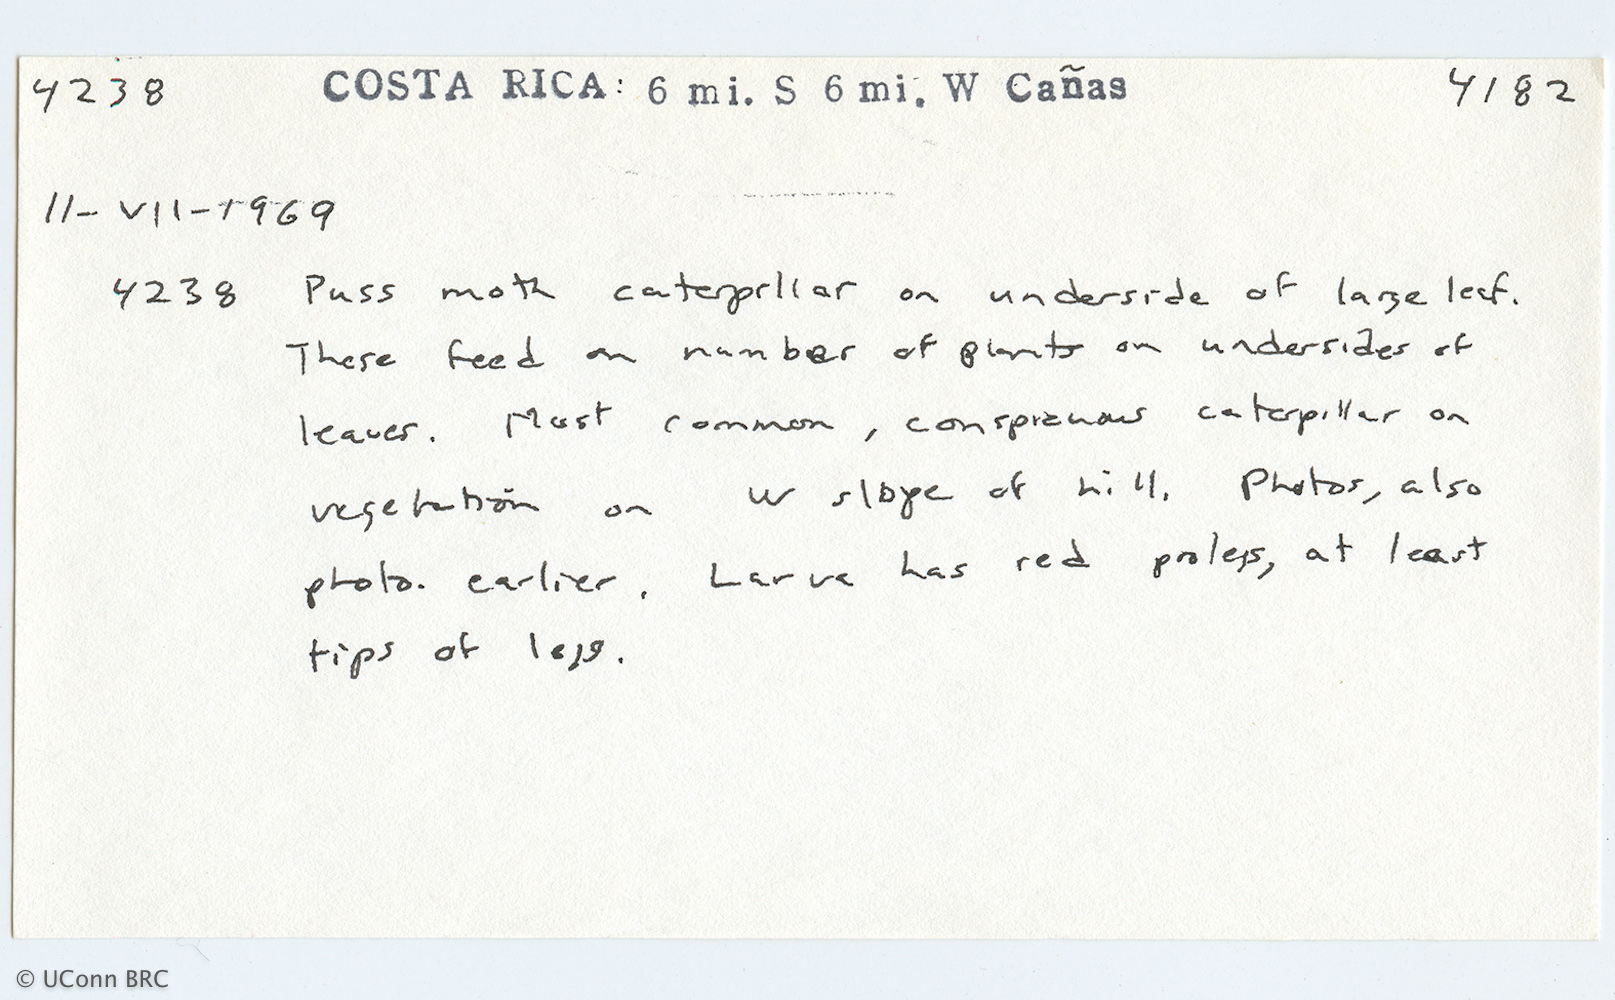 4238 COSTA RICA: 6 mi. S 6 mi. W Cañas 4182
11-VII-1969
4238 Puss moth caterpillar on underside of large leaf.
These feed on number of plants on undersides of
leaves. Most common, conspicuous caterpillar on
vegetation on W slope of hill. Photos, also
photo. earlier. Larva has red prolegs, at least
tips of legs.
© UConn BRC